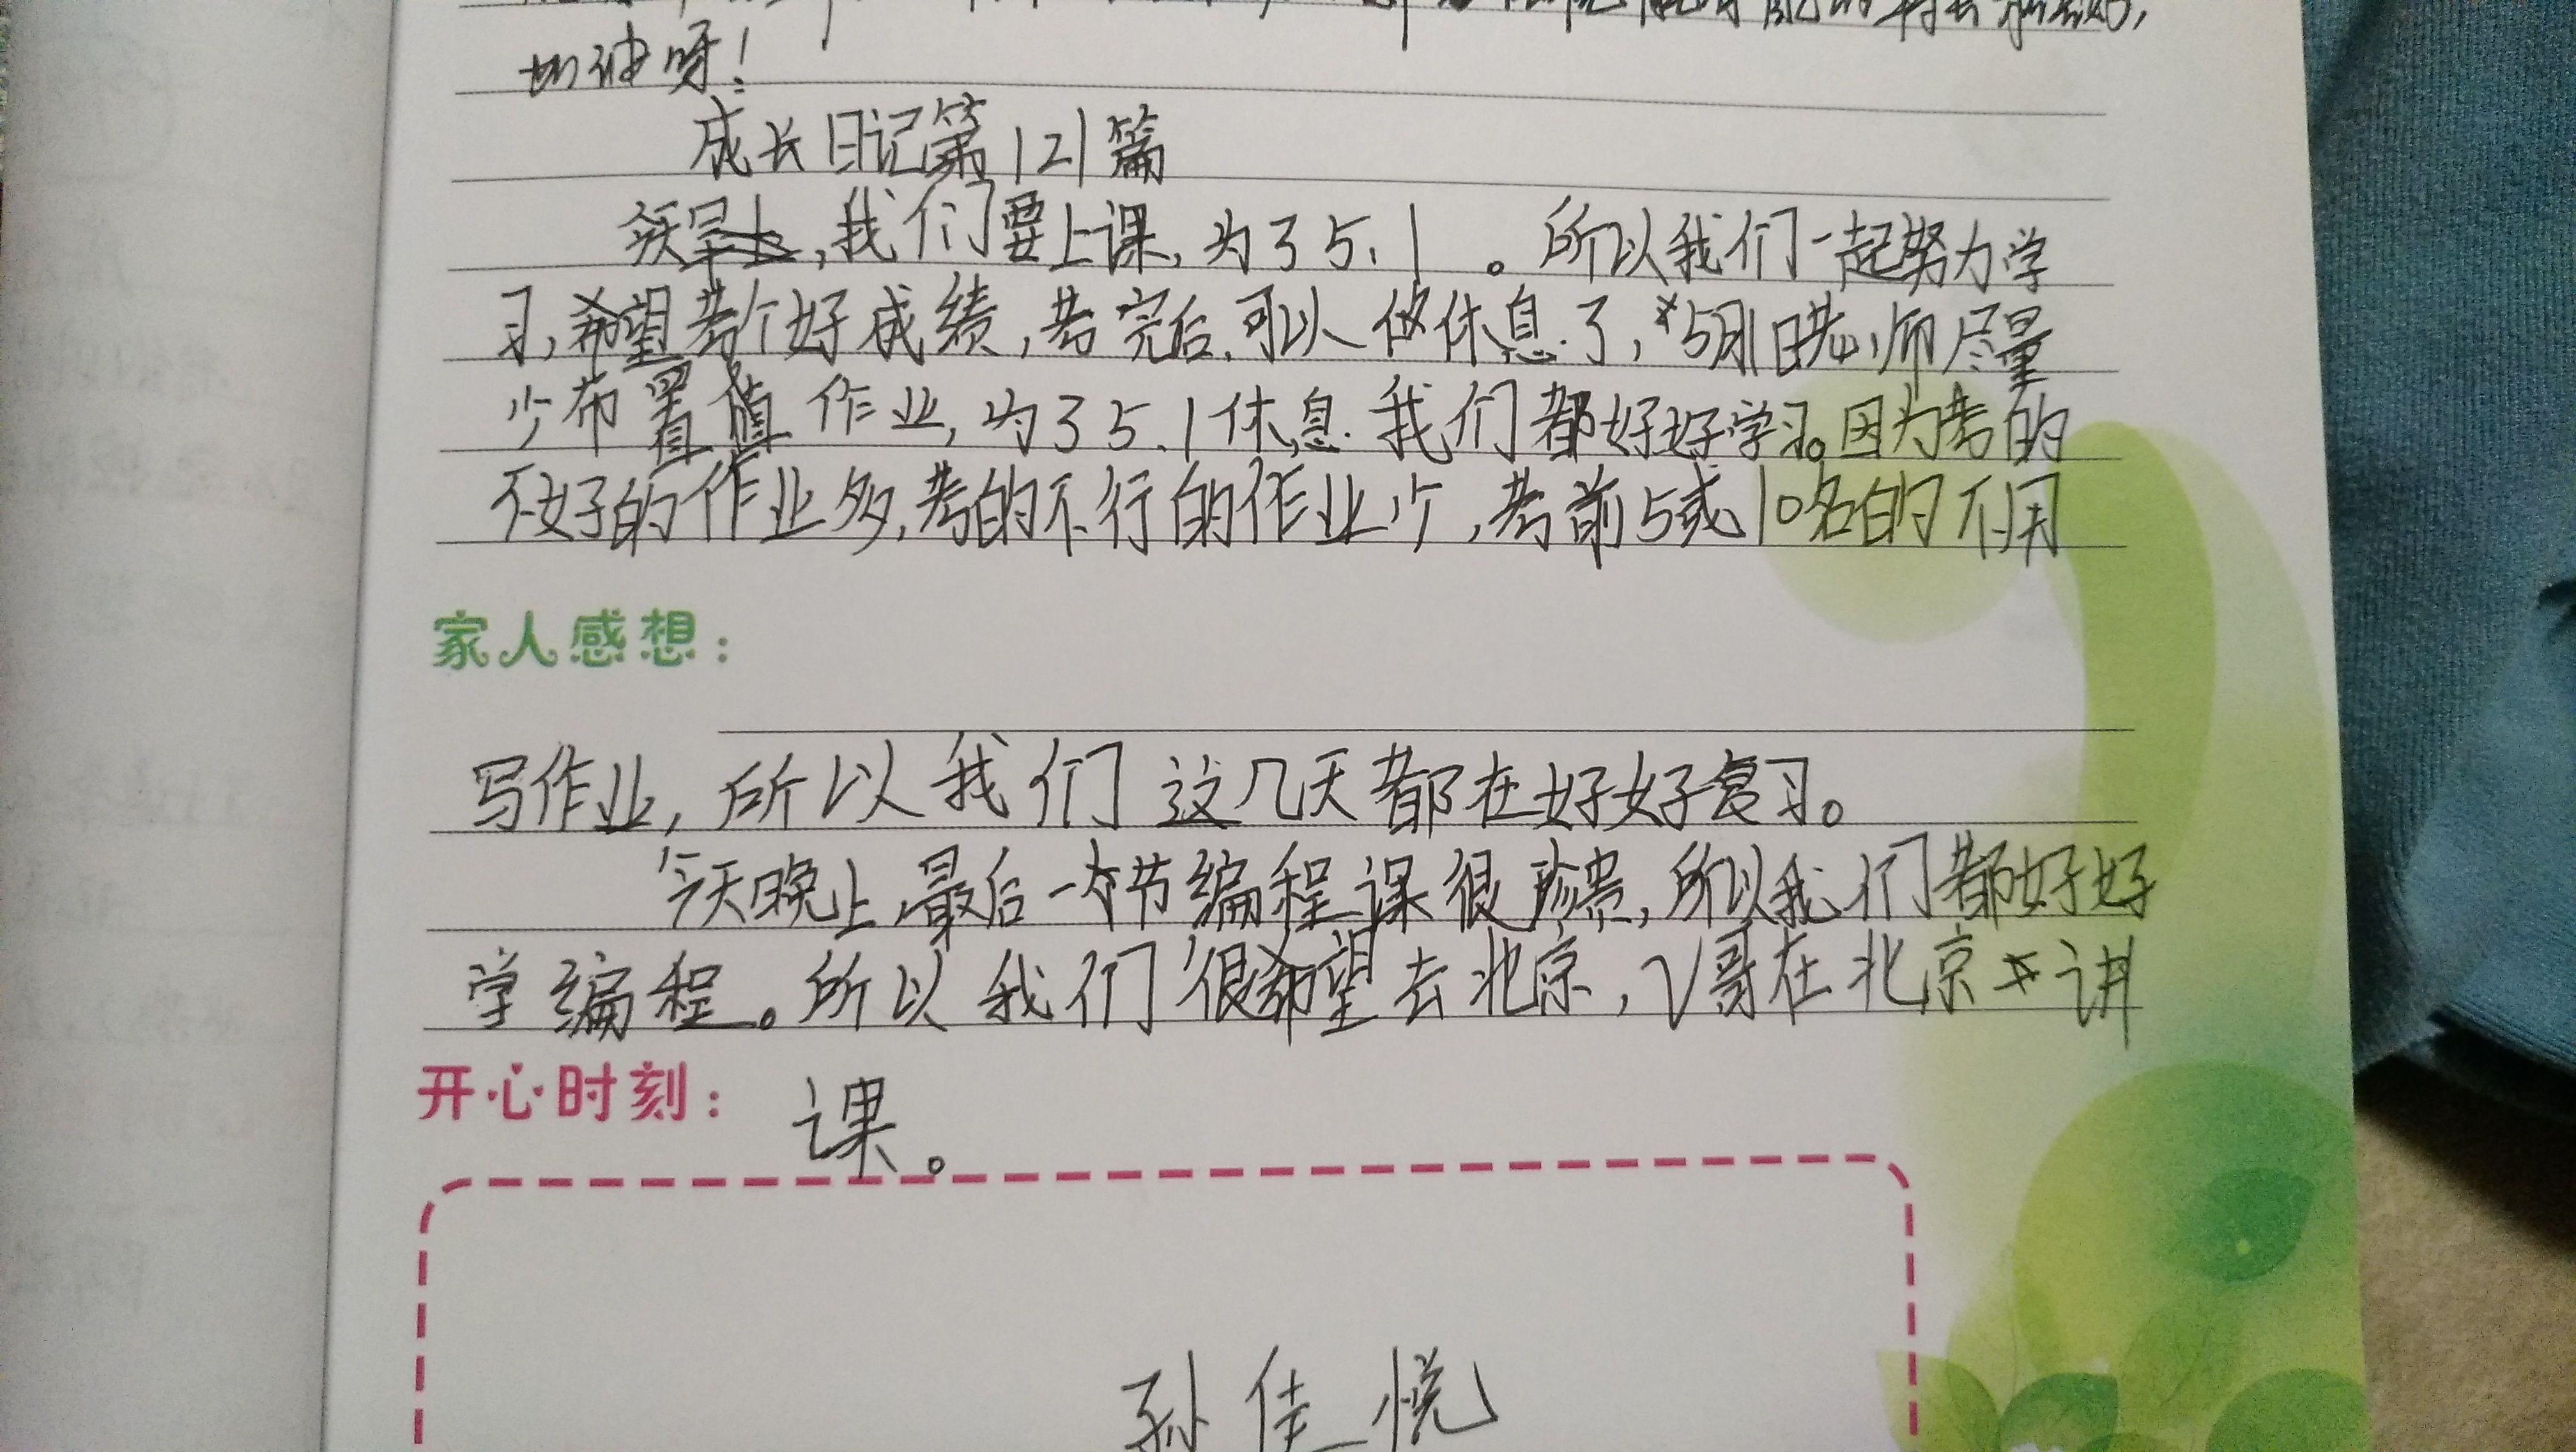 加油呀!
成长日记第121篇
今天,我们要上课,为了5.1。所以我们一起努力学
习,希望考个好成绩,考完后,可以休息了,5月1日老师尽量
少布置作业,为了5.1休息.我们都好好学习。因为考的
不好的作业多,考的不行的作业少,考前5或10名的不用
家人感想:
写作业,所以我们这几天都在好好复习。
今天晚上,最后一节编程课很珍贵,所以我们都好好
学编程。所以我们很希望去北京,V哥在北京讲
开心时刻: 课。
孙佳悦